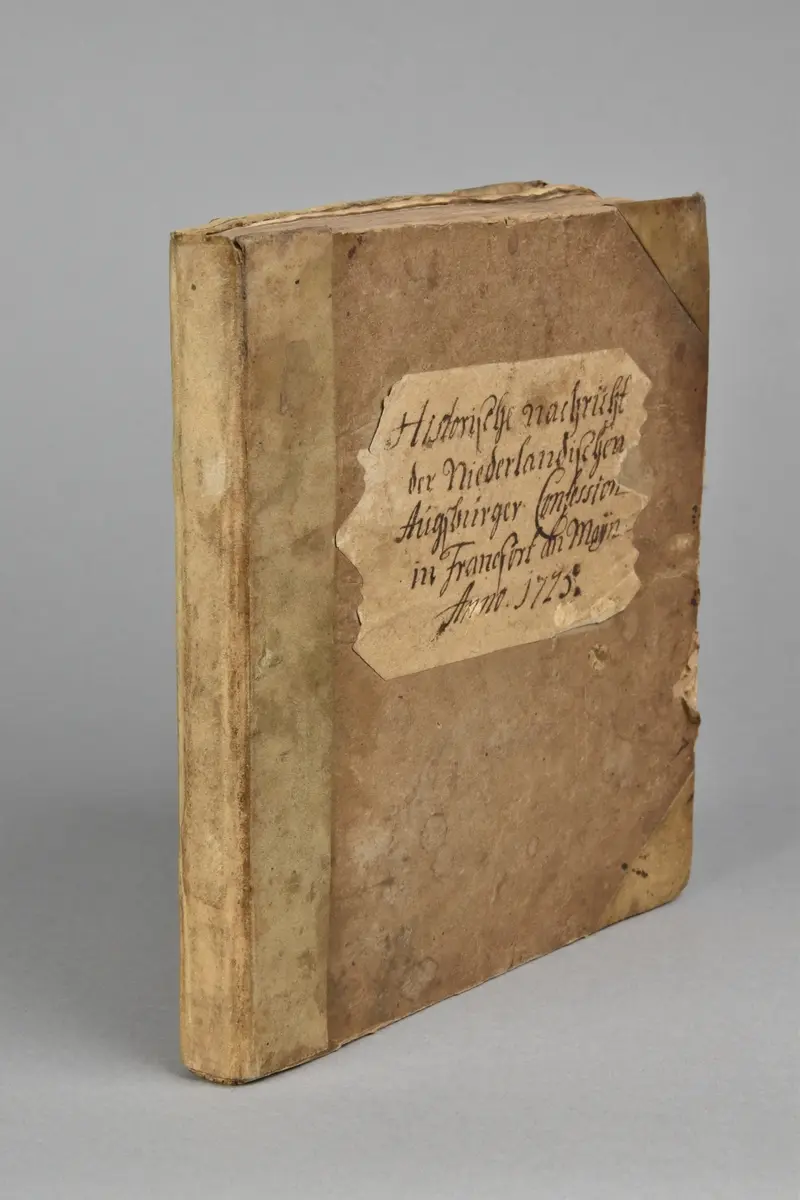 Historische nachricht
der Niederländischen
Augsburger Confession
in Francfort an Mayn
Anno. 1725.